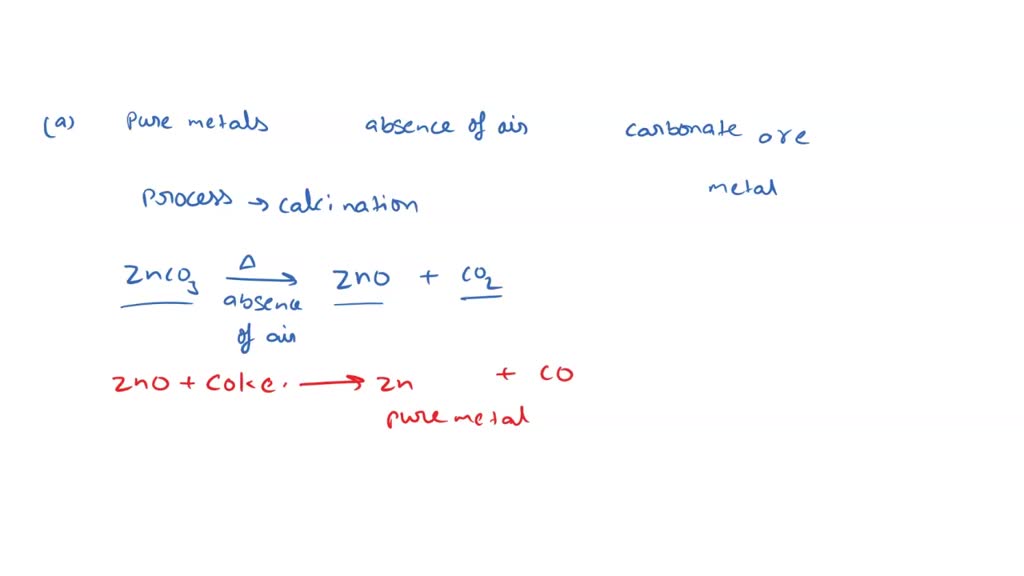 (a) Pure metals absence of air carbonate ore
Process → calcination metal
ZnCO3 Δ→ ZnO + CO2
absence
of air
ZnO + Coke. → Zn + CO
pure metal